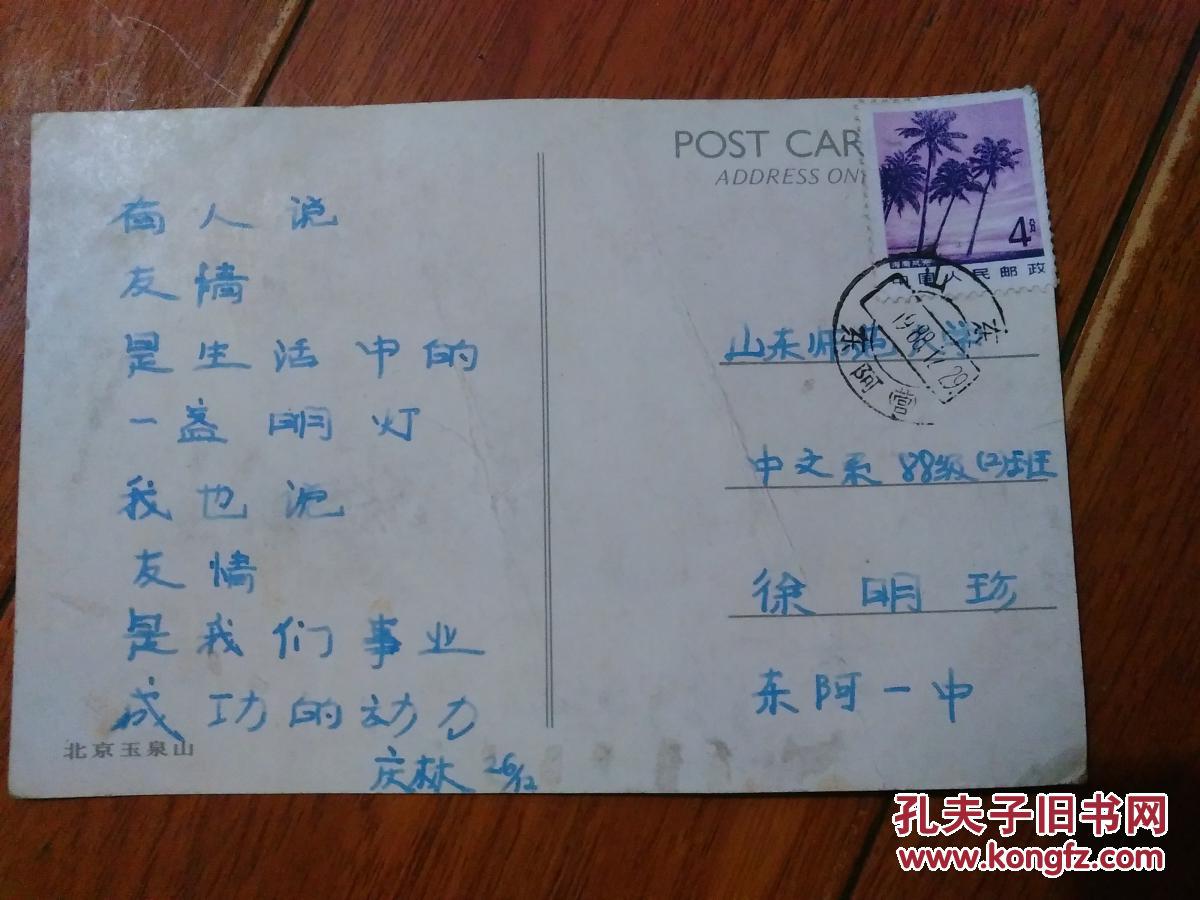 有人说
友情
是生活中的
一盏明灯
我也说
友情
是我们事业
成功的动力
庆林 26/12
北京玉泉山
POST CAR
ADDRESS ON
4分
中国人民邮政
山东
1988.12.29
东阿
山东师范大学
中文系 88级(2)班
徐明珍
东阿一中
孔夫子旧书网
www.kongfz.com